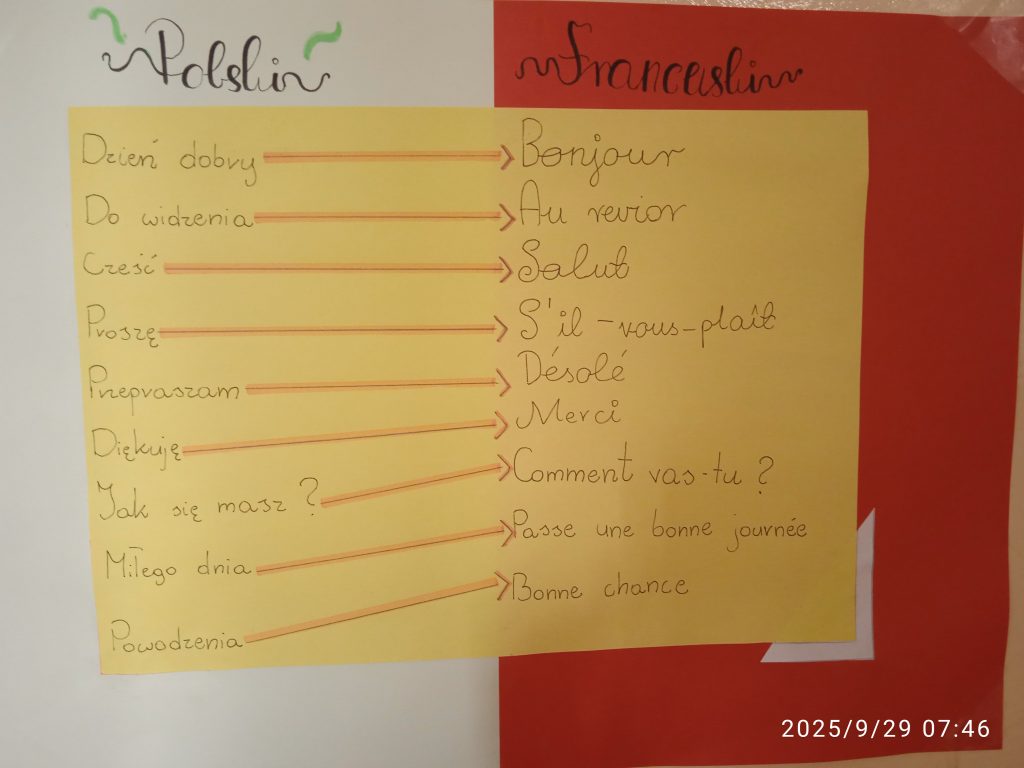 Polski
Francuski
Dzień dobry
Bonjour
Do widzenia
Au revior
Cześć
Salut
Proszę
S'il-vous-plaît
Przepraszam
Désolé
Diękuję
Merci
Jak się masz?
Comment vas-tu?
Miłego dnia
Passe une bonne journée
Powodzenia
Bonne chance
2025/9/29 07:46